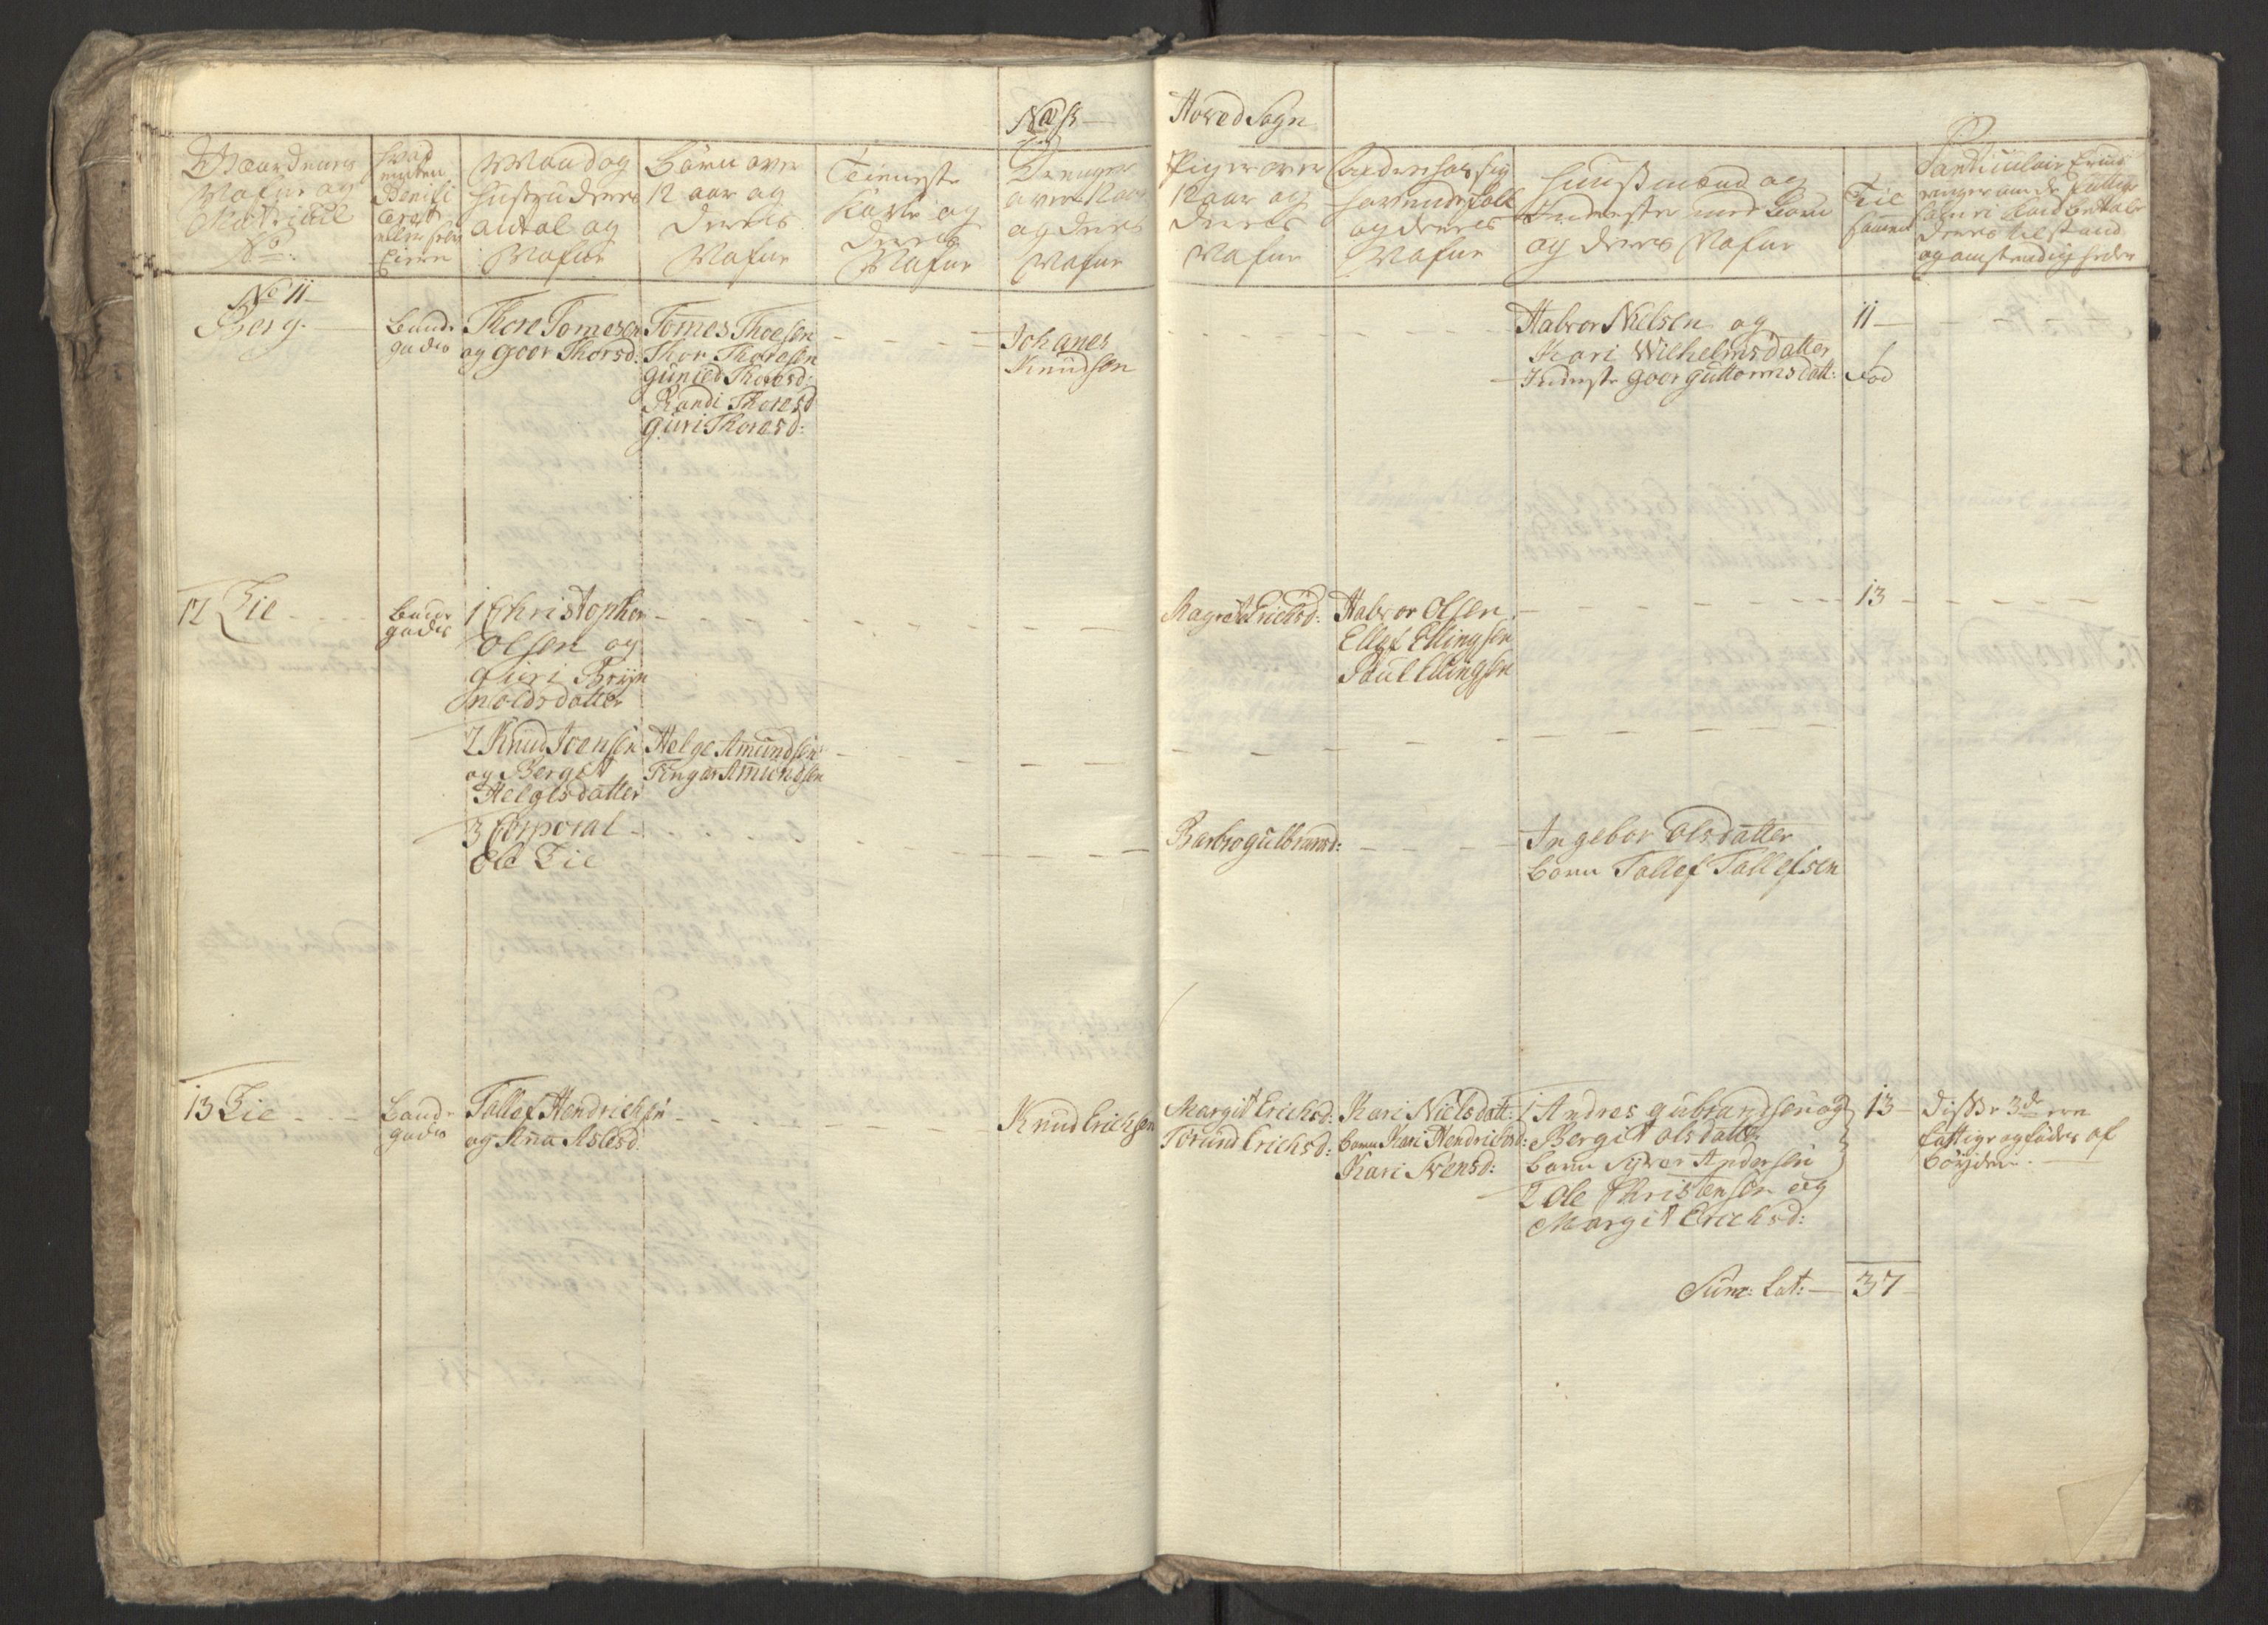 Næss
Hoved Sogn
Gaardenes
Nafne og
Matricul
No:
hvad
enten
Benifi
ceret
eller
Eiere
Mand og
Hustru deres
antal og
Nafne
Börn over
12 aar og
deres
Nafne
Tieneste
Karle og
deres
Nafne
Drenger
over 12 aar
og deres
Nafne
Piger over
12 aar og
deres
Nafne
og deres
Nafne
Huusmænd og
Inderste med Børn
og deres Nafne
Til
sammen
Particulair
deres tilstand
og omstendigheder
No 11
Berg
Bunde
gods
Thore Tomesen
og Goor Thorsd:
Tomes Thoesen
Thor Thoresen
Gunild Thoresd:
Randi Thoresd
Guri Thoresd:
Johanes
Knudsen
Halvor Nielsen og
Kari Wilhelmsdatter
Inderste Goor Guttormsdatt:
11
12 Lie
Bunde
gods
1 Christopher
Olsen og
Guri Bryn
noldsdatter
Magrit Erichsd:
Halvor Olsen
Ellef Ellingsen
Paul Ellingsen
13
2 Knud Joensen
og Bergit
Helgesdatter
Helge Amundsen
Tingar Amundsen
3 Corporal
Ole Lie
Barbro Gulbransd:
Ingebor Olsdatter
Børn Tollef Tollefsen
13 Lie
Bunde
gods
Tollef Hendrichsen
og Anna Aslesd.
Knud Erichsen
Margit Erichsd:
Torund Erichsd:
Kari Nielsdatt:
børn Kari Hendrichsd:
Kari Svensd:
1 Andres Gubrandsen og
Bergit Olsdatter
børn Syver Andersen
2 Ole Christensen og
Margit Erichsd:
13
disse 3de ere
fattige og födes af
böyden.
Sum: Lat:
37